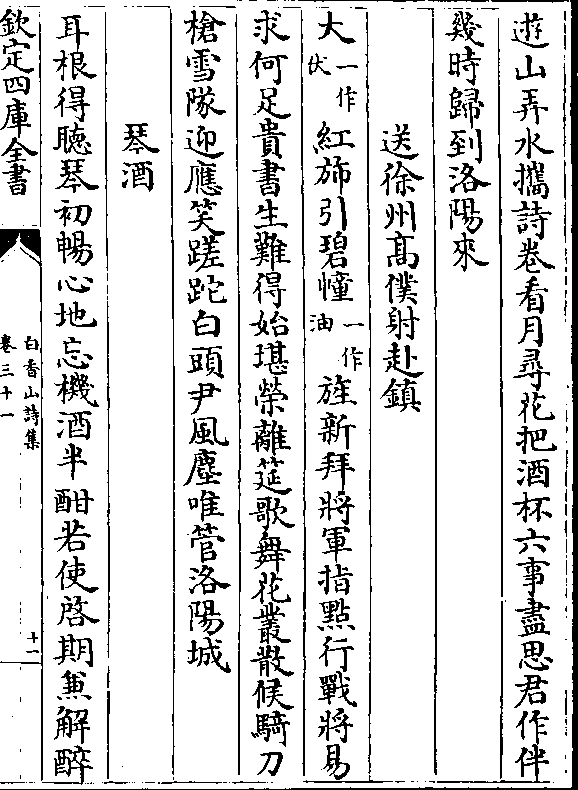 遊山弄水攜詩卷看月尋花把酒杯六事盡思君作伴
幾時歸到洛陽來
送徐州髙僕射赴鎮
大一作伏紅斾引碧幢一作油旌新拜將軍指㸃行戰將易
求何足貴書生難得始堪榮離筵歌舞花叢散候騎刀
槍雪隊迎應笑蹉跎白頭尹風塵唯管洛陽城
琴酒
耳根得聽琴初暢心地忘機酒半酣若使啓期兼解醉
欽定四庫全書
白香山詩集
卷三十一
十一